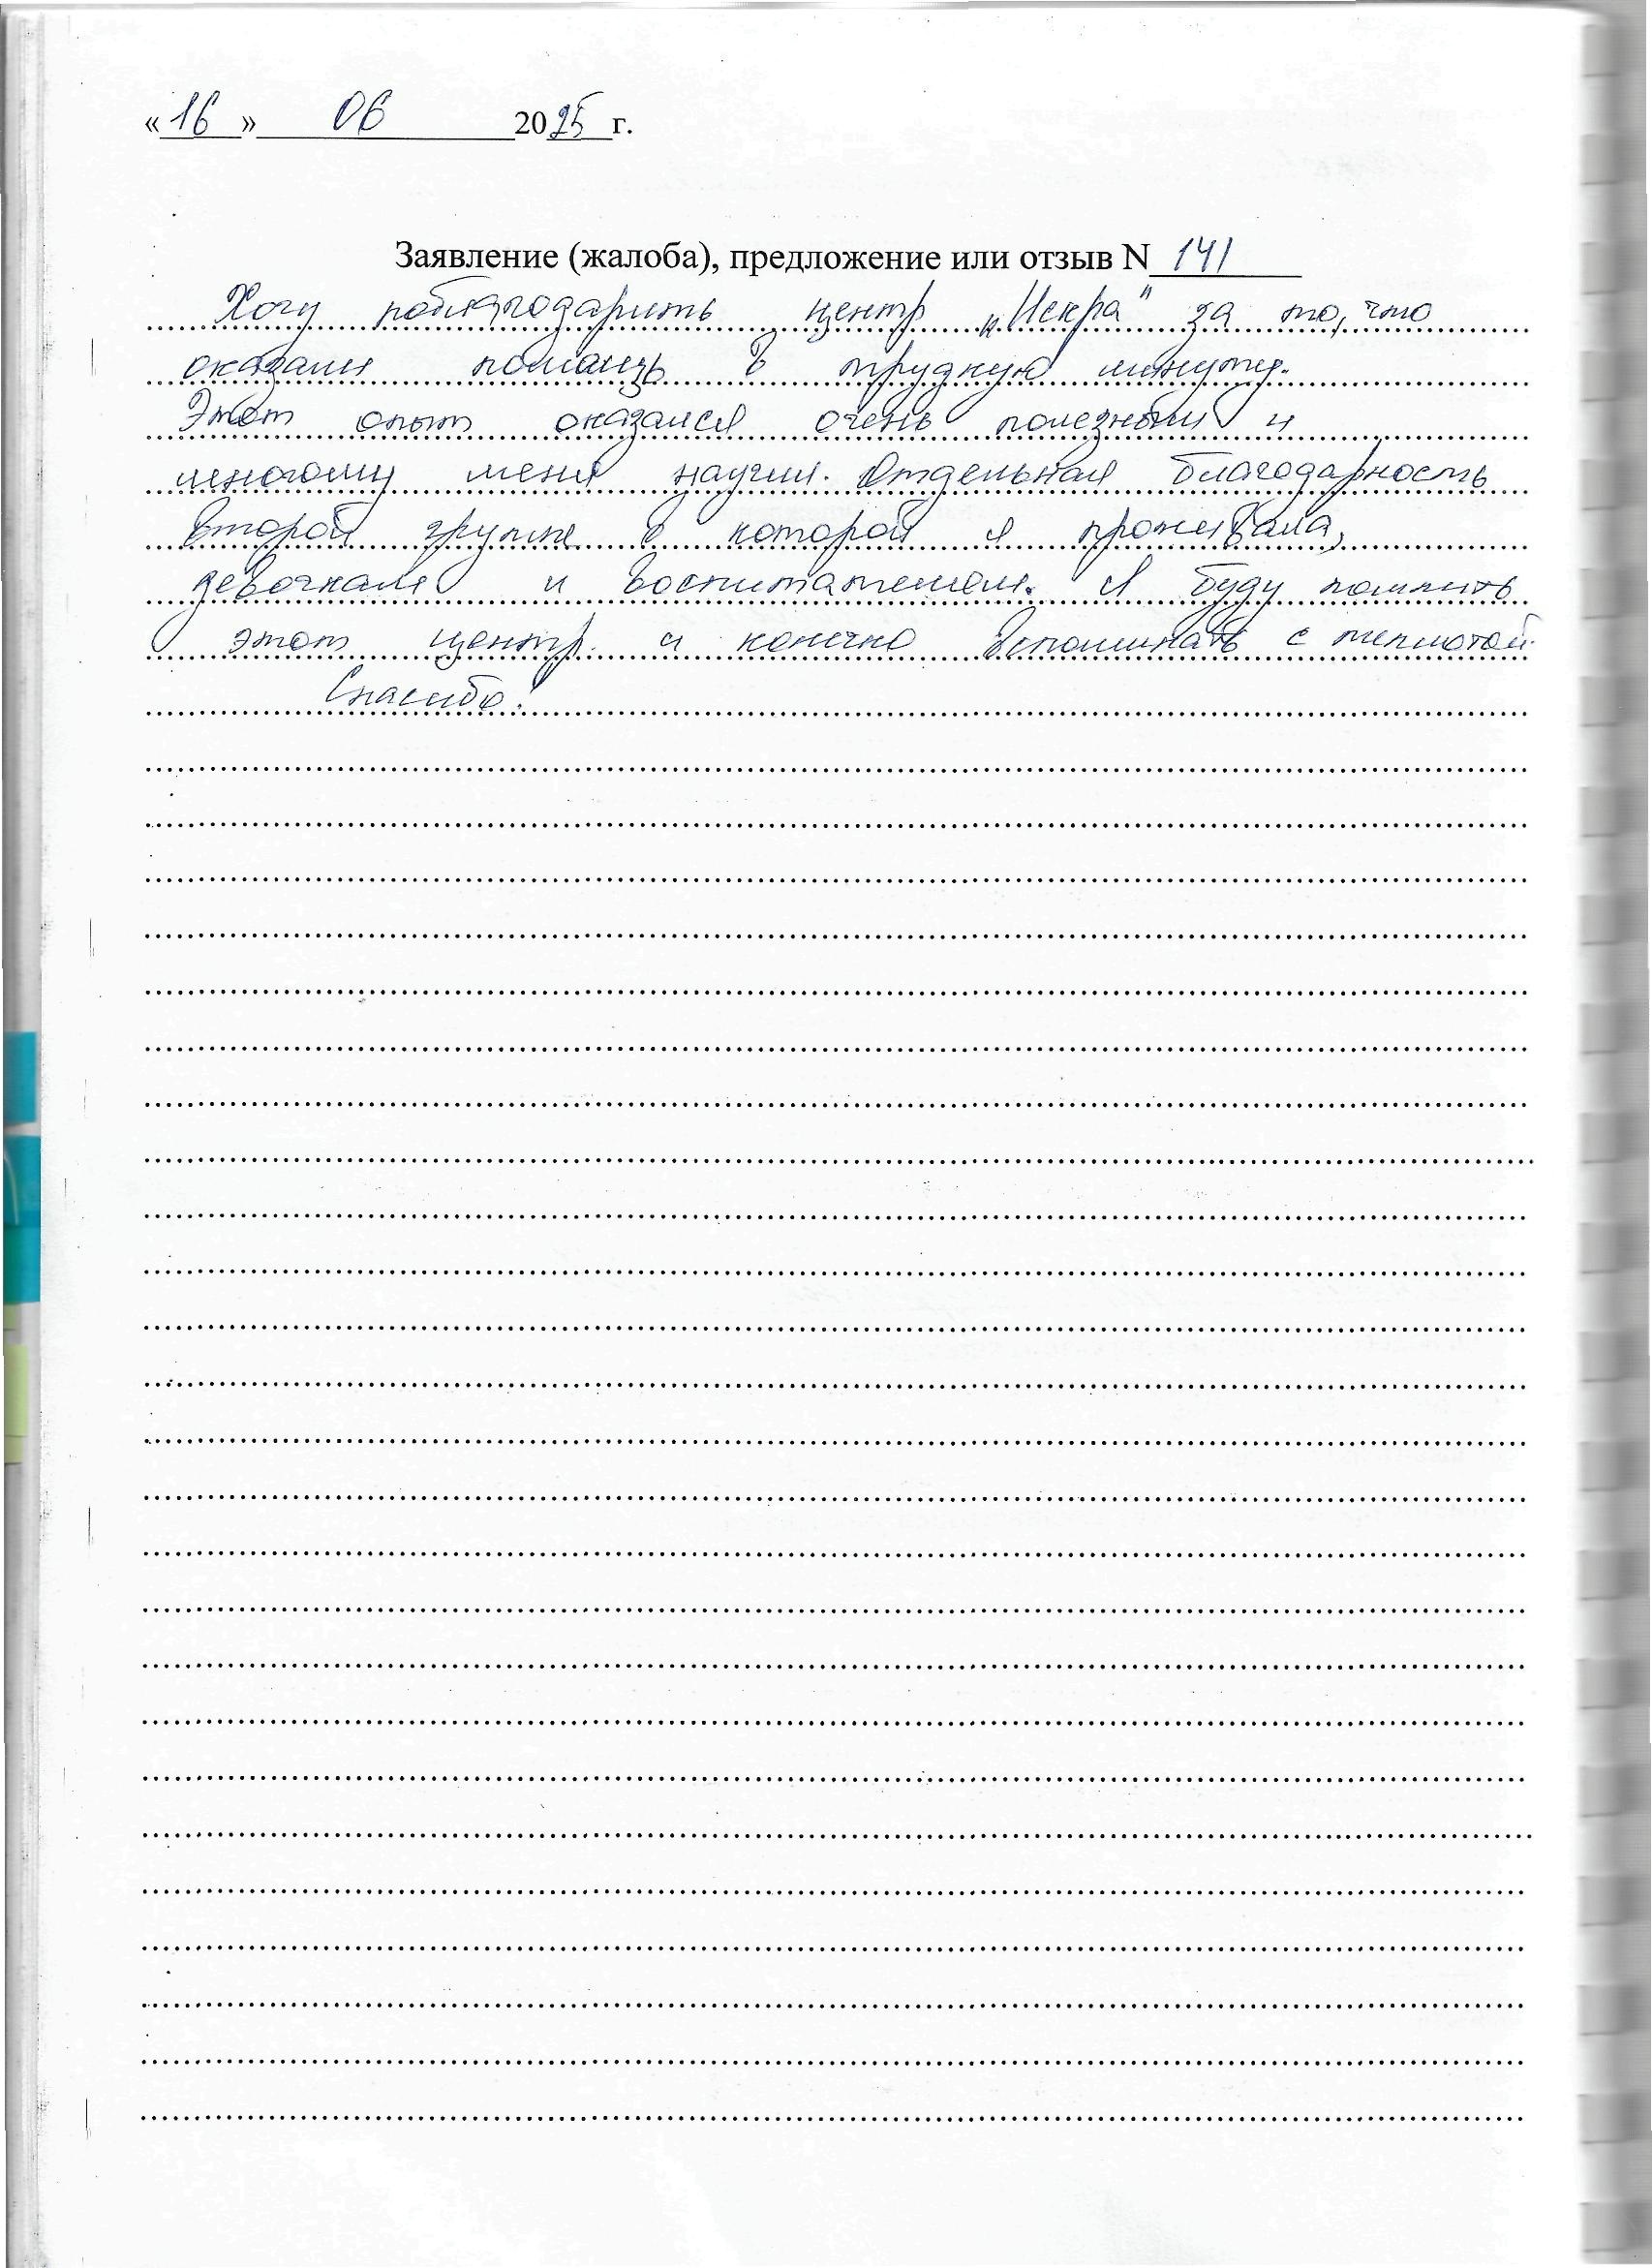 «16» 06 2025 г.
Заявление (жалоба), предложение или отзыв N 141
Хочу поблагодарить центр „Искра“ за то, что
оказали помощь в трудную минуту.
Этот опыт оказался очень полезным и
многому меня научил. Отдельная благодарность
второй группе в которой я проживала,
девочкам и воспитателям. Я буду помнить
этот центр и конечно вспоминать с теплотой.
Спасибо!